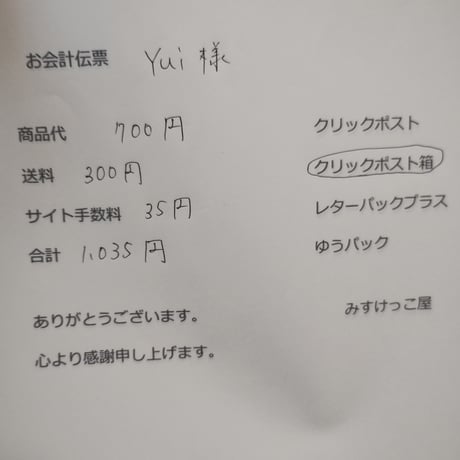 お会計伝票 Yui 様
商品代 700円
送料 300円
サイト手数料 35円
合計 1,035円
ありがとうございます。
心より感謝申し上げます。
クリックポスト
クリックポスト箱
レターパックプラス
ゆうパック
みすけっこ屋